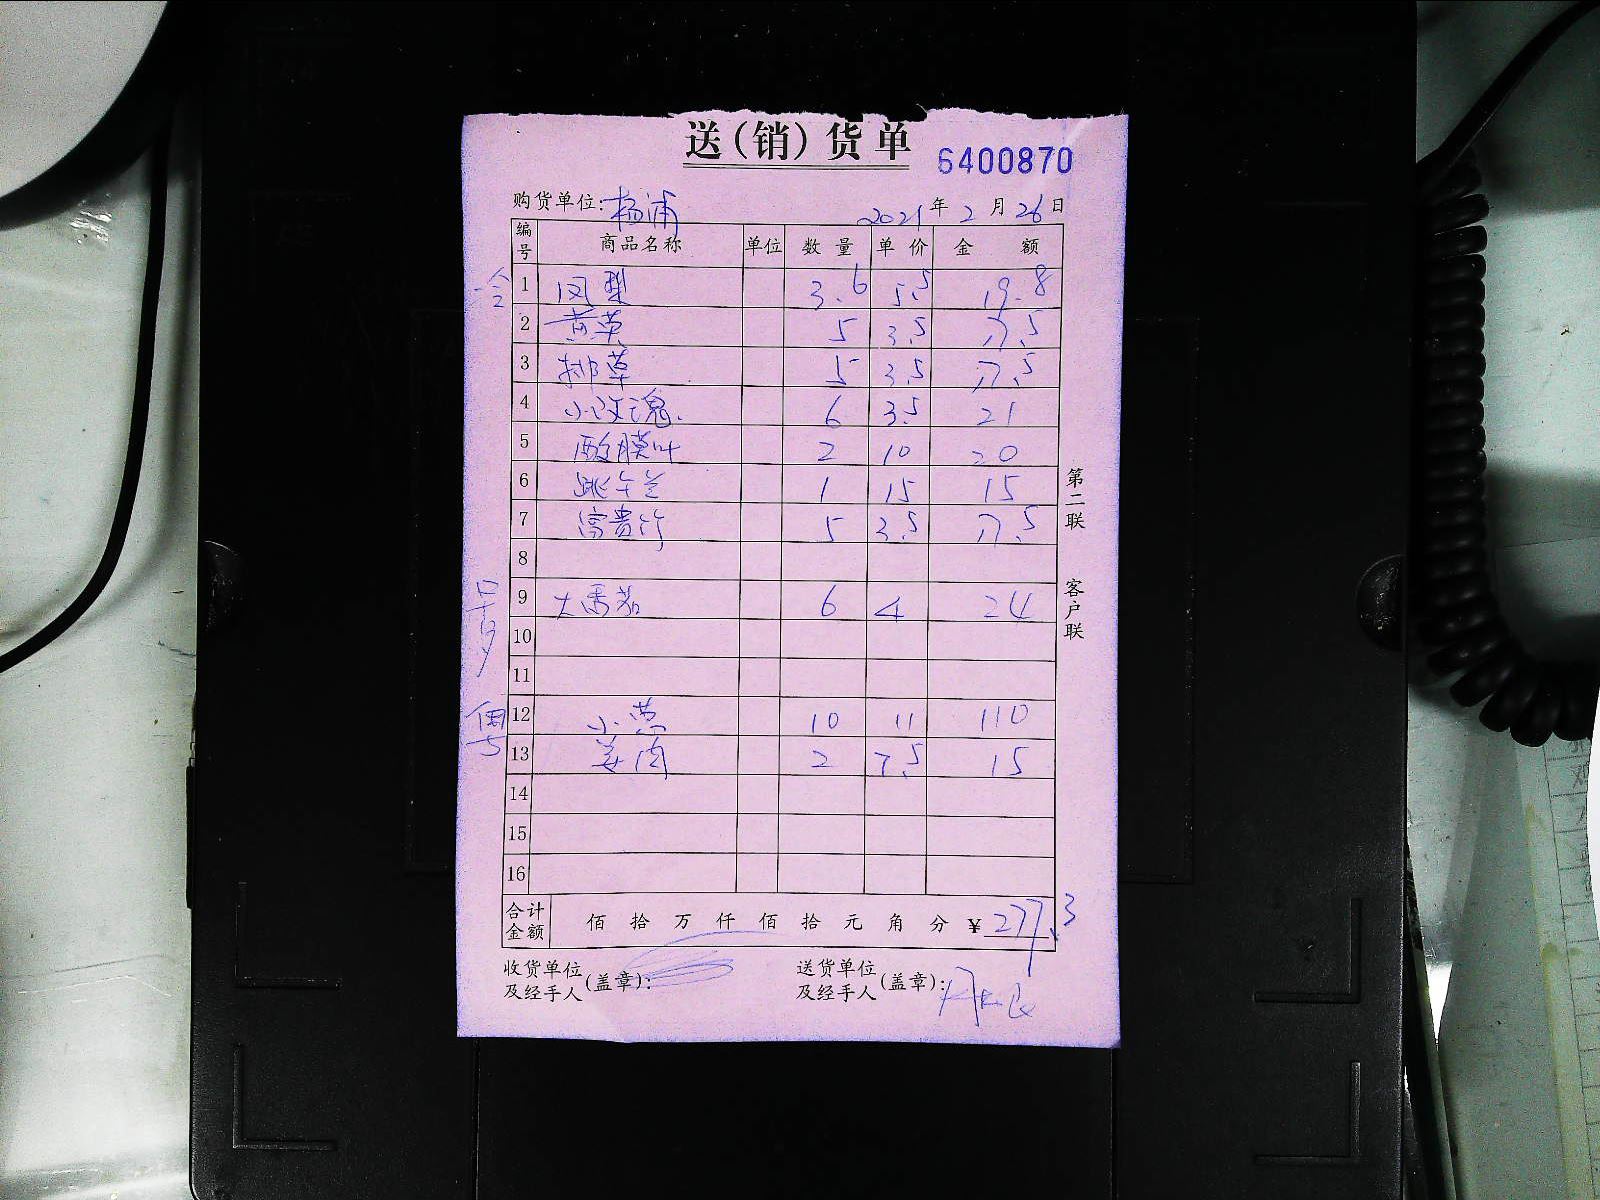 送(销)货单
6400870
购货单位:杨浦 2021年2月26日
编号 商品名称 单位 数量 单价 金额
1 凤梨 3.6 5.5 19.8
2 黄英 5 3.5 17.5
3 排草 5 3.5 17.5
4 小玫瑰 6 3.5 21
5 酸膜叶 2 10 20
6 跳午兰 1 15 15
7 富贵竹 5 3.5 17.5
8
9 大番茄 6 4 24
10
11
12 小葱 10 11 110
13 姜肉 2 7.5 15
14
15
16
合计金额 佰拾万仟佰拾元角分 ¥277.3
收货单位及经手人(盖章): 送货单位及经手人(盖章):
第二联 客户联